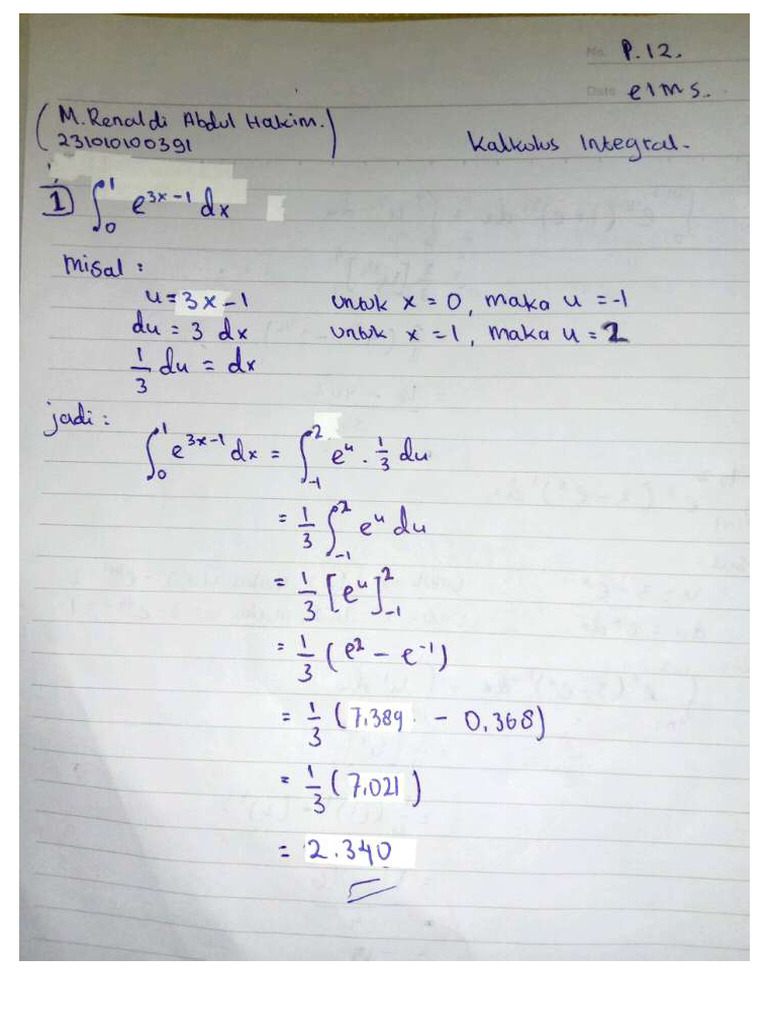 No. P.12.
Date elms.
(M. Renaldi Abdul Hakim.)
231010100391
Kalkulus Integral.
1 ∫₀¹ e^(3x-1) dx
Misal :
u = 3x - 1 untuk x = 0, maka u = -1
du = 3 dx untuk x = 1, maka u = 2
1/3 du = dx
jadi :
∫₀¹ e^(3x-1) dx = ∫₋₁² e^u . 1/3 du
= 1/3 ∫₋₁² e^u du
= 1/3 [e^u]₋₁²
= 1/3 (e² - e⁻¹)
= 1/3 (7.389 - 0.368)
= 1/3 (7.021)
= 2.340